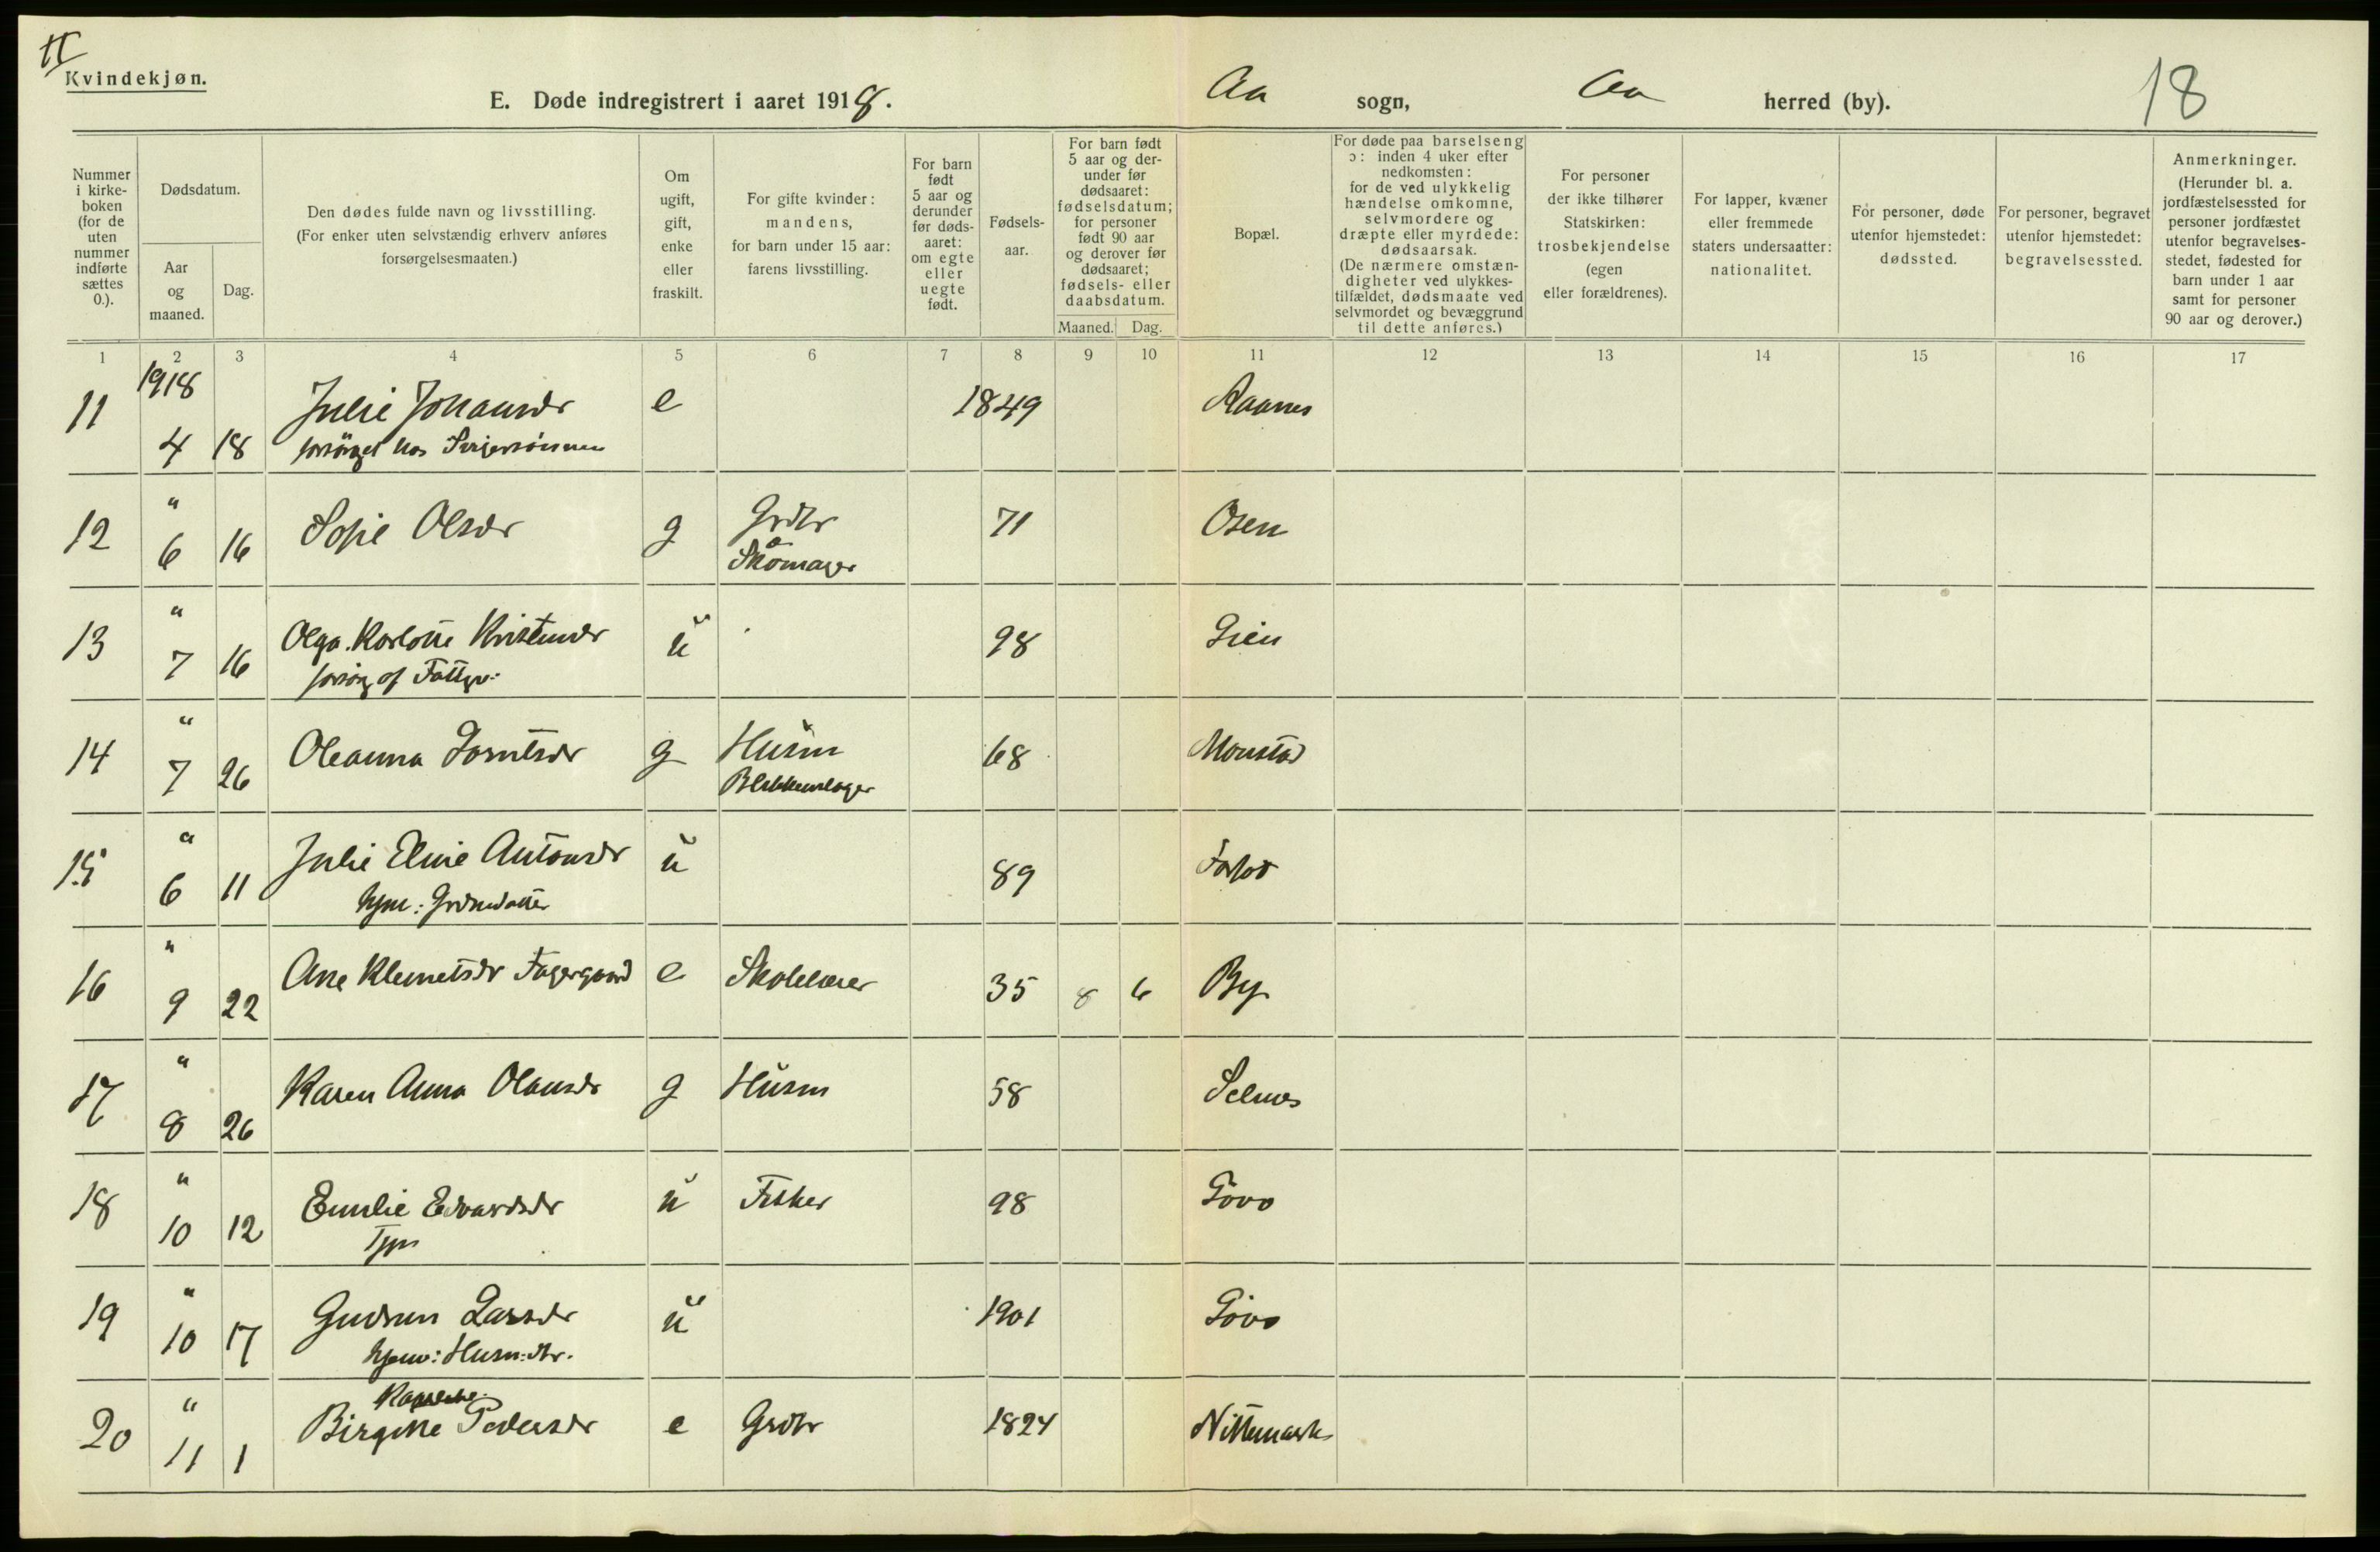 II
Kvindekjøn.
E. Døde indregistrert i aaret 1918.
Aa sogn, Aa herred (by).
18
Nummer i kirke-boken (for de uten nummer indførte sættes 0.).
Dødsdatum.
Aar og maaned.
Dag.
Den dødes fulde navn og livsstilling.
(For enker uten selvstændig erhverv anføres forsørgelsesmaaten.)
Om ugift, gift, enke eller fraskilt.
For gifte kvinder: mandens, for barn under 15 aar: farens livsstilling.
For barn født 5 aar og derunder før døds-aaret: om egte eller uegte født.
Fødsels-aar.
For barn født 5 aar og der-under før dødsaaret: fødselsdatum; for personer født 90 aar og derover før dødsaaret; fødsels- eller daabsdatum.
Maaned. Dag.
Bopæl.
For døde paa barselseng ɔ: inden 4 uker efter nedkomsten: for de ved ulykkelig hændelse omkomne, selvmordere og dræpte eller myrdede: dødsaarsak.
(De nærmere omstæn-digheter ved ulykkes-tilfældet, dødsmaate ved selvmordet og bevæggrund til dette anføres.)
For personer der ikke tilhører Statskirken: trosbekjendelse (egen eller forældrenes).
For lapper, kvæner eller fremmede staters undersaatter: nationalitet.
For personer, døde utenfor hjemstedet: dødssted.
For personer, begravet utenfor hjemstedet: begravelsessted.
Anmerkninger.
(Herunder bl. a. jordfæstelsessted for personer jordfæstet utenfor begravelses-stedet, fødested for barn under 1 aar samt for personer 90 aar og derover.)
1 2 3 4 5 6 7 8 9 10 11 12 13 14 15 16 17
1918
11 4 18 Julie Johansdr e 1849 Aanes
forsörget hos
12 " 6 16 Sofie Olsdr g Grdbr 71 Osen
Skomager
13 " 7 16 Olga Karlotte Kristensdr u 98 Lien
forsörg af Fattigv.
14 " 7 26 Oleanna Larntsdr g Husm 68 Monstad
Blikkenslager
15 " 6 11 Julie Eline Antonsdr u 89
hjem: Grdmdatter
16 " 9 22 Ane Klemetsdr Fagergaard e Skolelærer 35 8 6 By
17 " 8 26 Karen Anna Olausdr g Husm 58 Selnes
18 " 10 12 Emelie Edvardsdr u Fisker 98
Tjen
19 " 10 17 Gudrun Larsdr u 1901
hjem: Husm:dtr.
20 " 11 1 Birgitte Pedersdr e Grdbr 1824